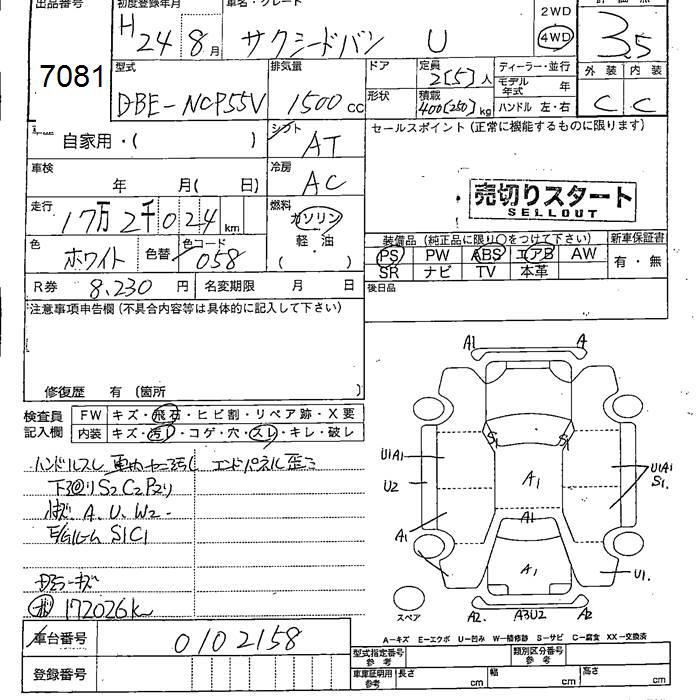 出品番号 初度登録年月 車名・グレード
H 24年 8月 サクシードバン U
2WD
4WD
3.5
7081
型式 排気量 ドア 定員 ディーラー・並行
DBE-NCP55V 1500cc 2[5]人 モデル年式 年
形状 積載 400[250]kg ハンドル 左・右
外装 内装
C C
自家用・( ) シフト AT
セールスポイント(正常に機能するものに限ります)
車検 年 月( 日) 冷房 AC
売切りスタート
SELLOUT
走行 17万2千024km 燃料 ガソリン
軽・油
( )
色 ホワイト 色替 色コード 058
装備品(純正品に限り○をつけて下さい) 新車保証書
PS PW ABS エアB AW 有・無
SR ナビ TV 本革
R券 8,230円 名変期限 月 日
後日品
注意事項申告欄(不具合内容等は具体的に記入して下さい)
修復歴 有(箇所 )
検査員記入欄 FW キズ・飛石・ヒビ割・リペア跡・X要
内装 キズ・汚レ・コゲ・穴・スレ・キレ・破レ
ハンドルスレ エンドパネル歪ミ
下回り S2 C2
A、U、W2
S1C1
172026K
A1 A
S1 S1
U1A1 U1A1
U2 S1.
A1
A1
A1
A1 U1.
スペア A2. A3U2 A2
A-キズ E-エクボ U-凹み W-補修跡 S-サビ C-腐食 XX-交換済
車台番号 0102158
型式指定番号 参考 類別区分番号 参考
登録番号
車庫証明用 参考 長さ cm 幅 cm 高さ cm